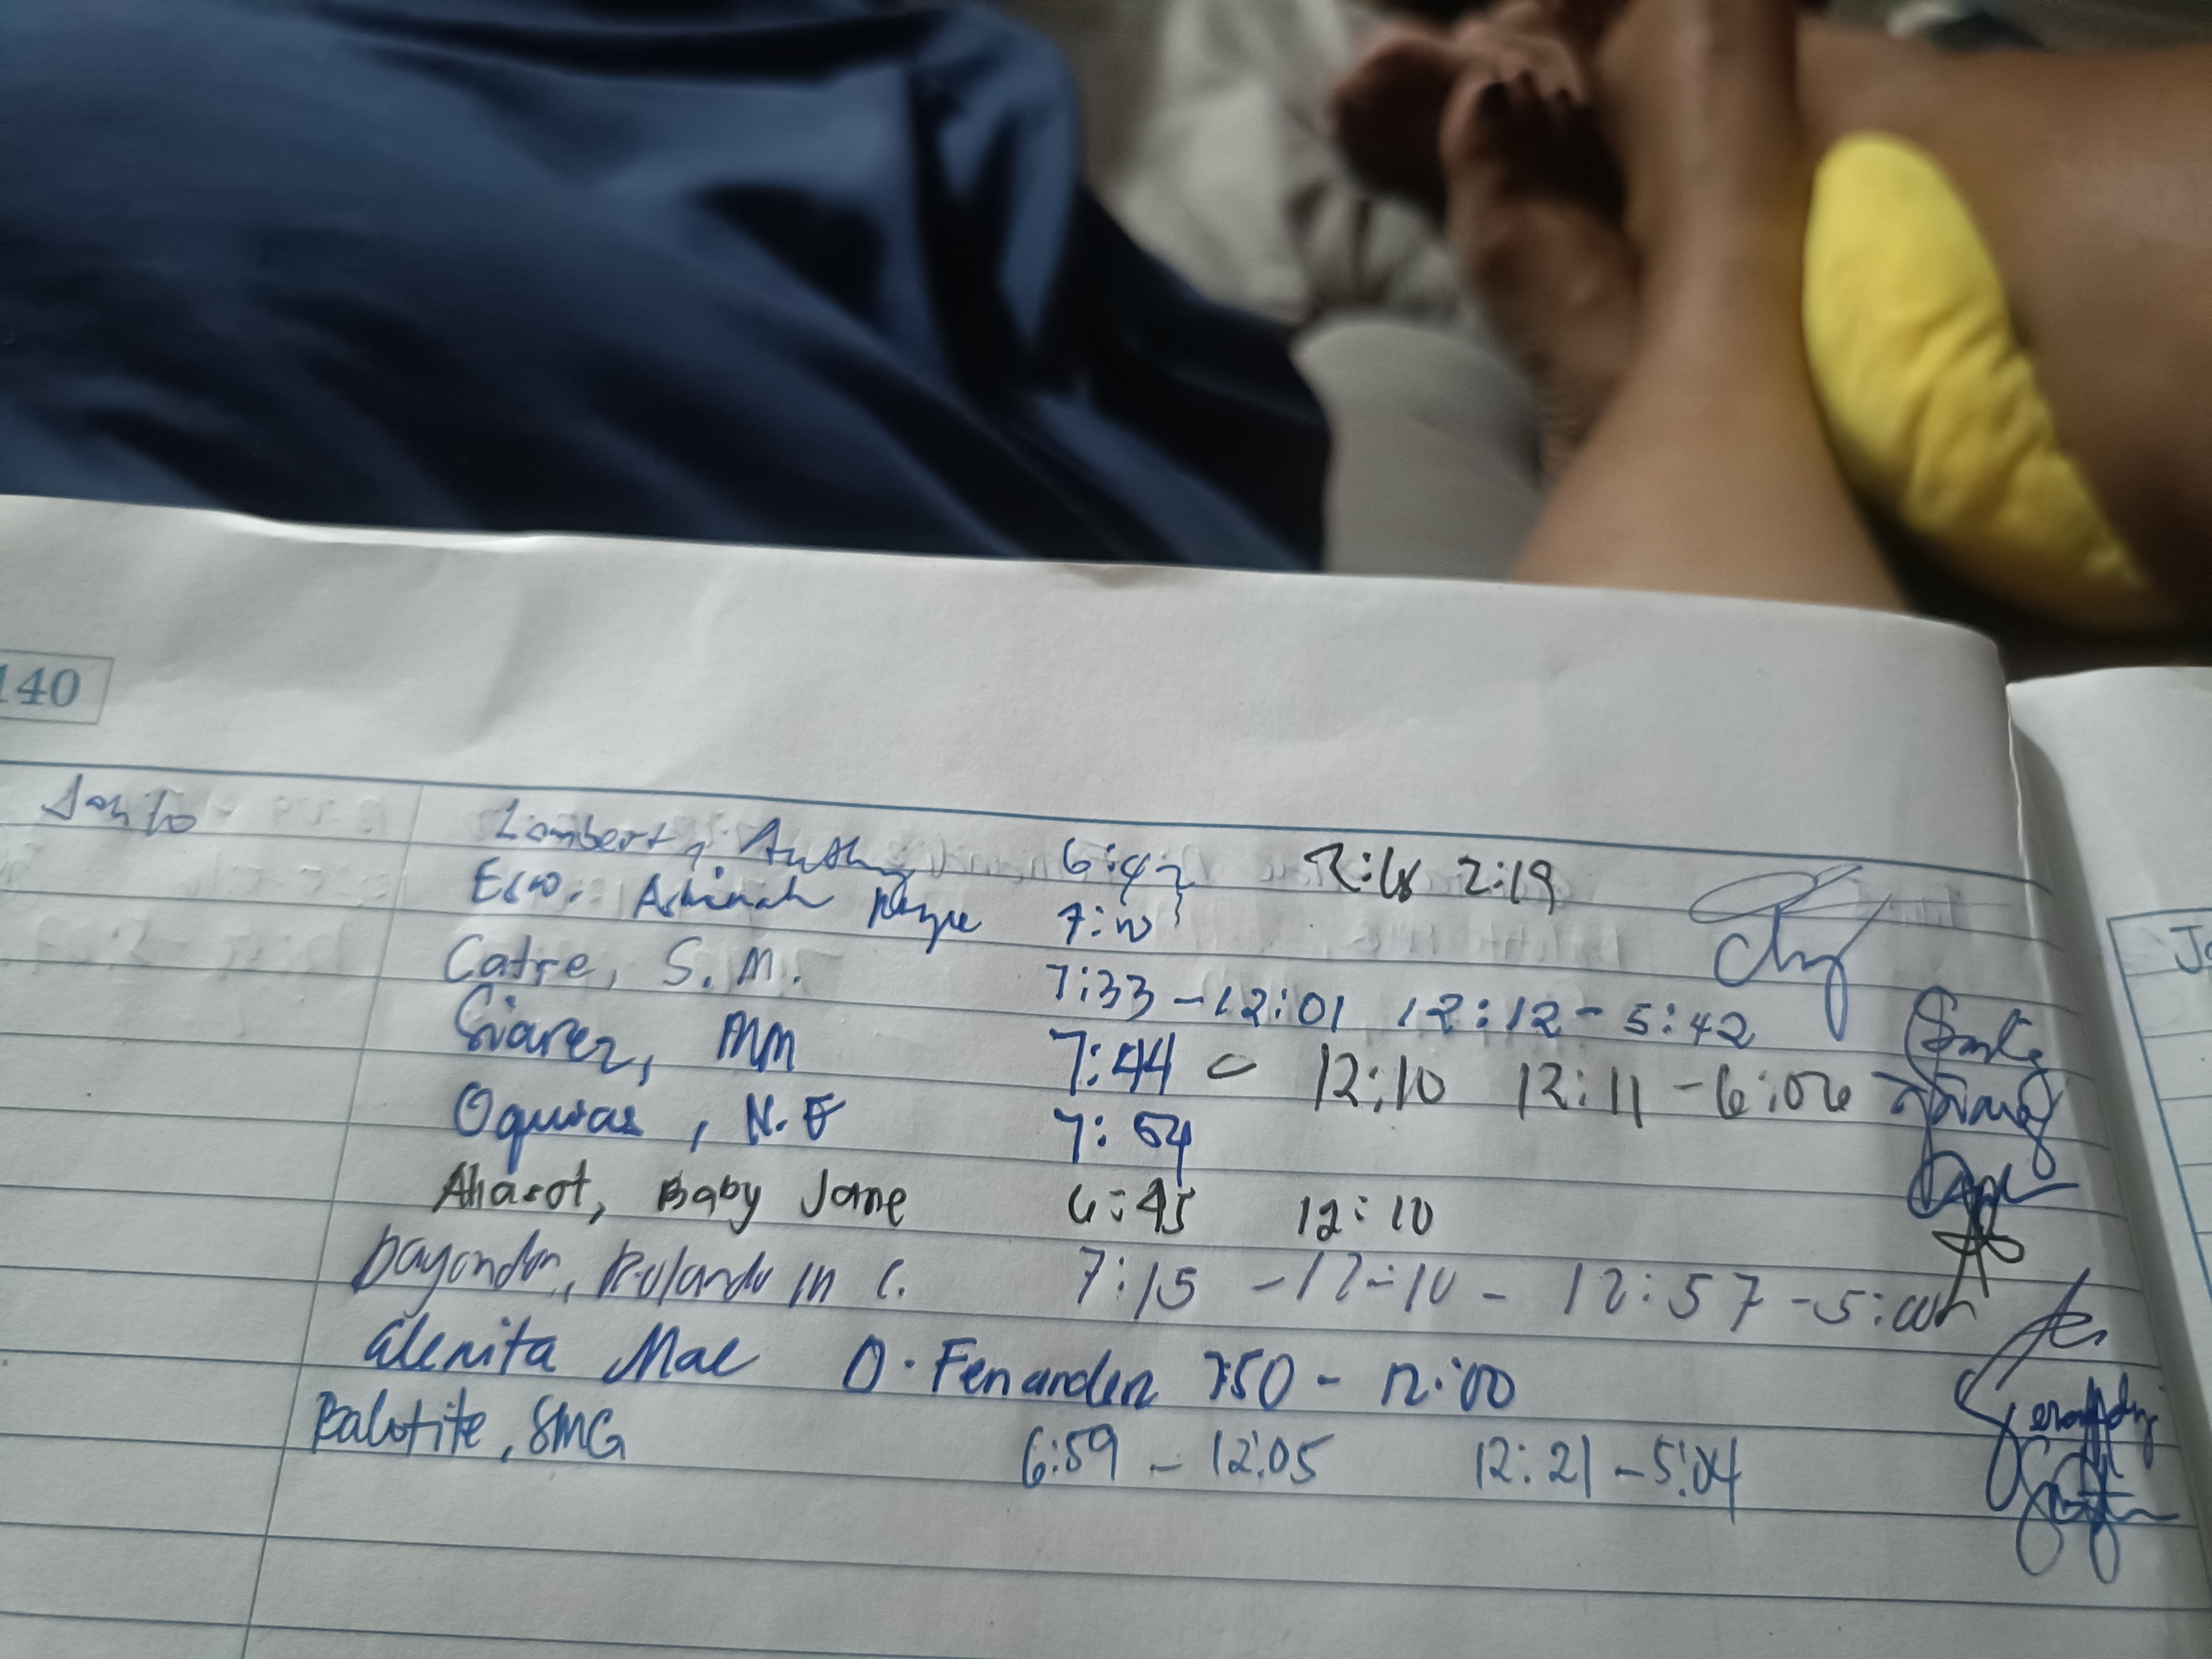 140
Jan 10 Lambert, Anthony 6:42 2:19
Esco, Ashinah 7:10
Catre, S.M. 7:33 - 12:01 12:12 - 5:42
Suarez, MM 7:44 - 12:10 12:11 - 6:06
Oquias, N.E 7:54
Aharot, Baby Jane 6:45 12:10
Dayondon, Rolando in C. 7:15 - 12:10 - 12:57 - 5:00
Glenita Mae D. Fenanden 7:50 - 12:00
Balotite, SMG 6:59 - 12:05 12:21 - 5:04